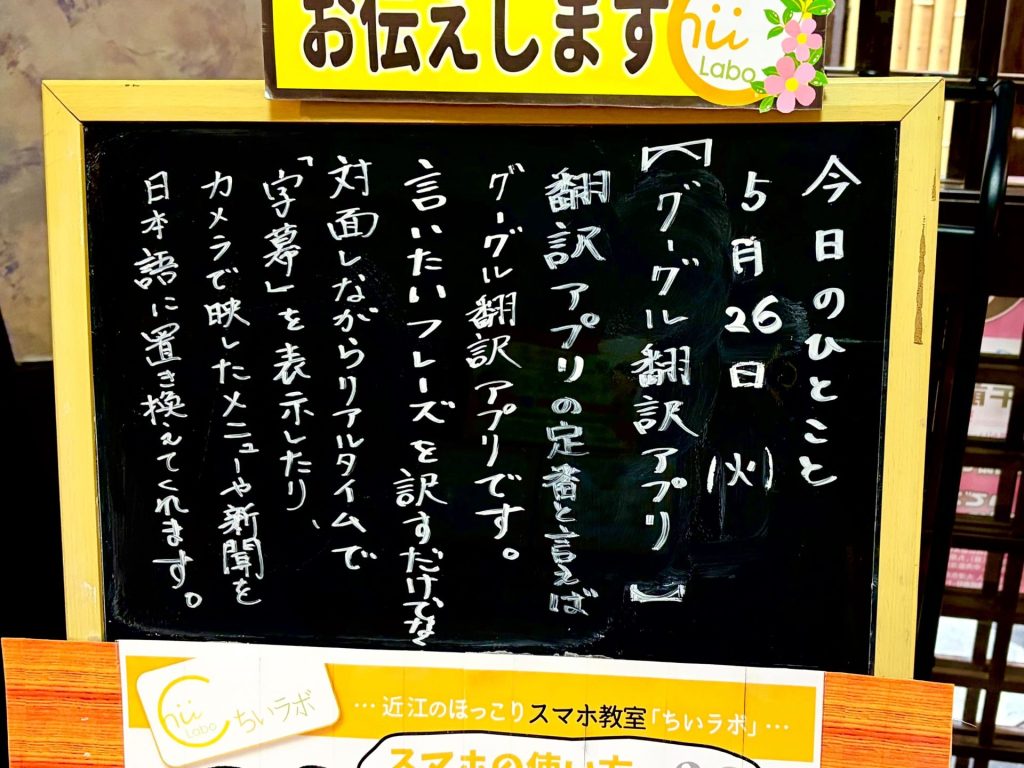 お伝えします
Chii
Labo
今日のひとこと
5月26日(火)
【グーグル翻訳アプリ】
翻訳アプリの定番と言えば
グーグル翻訳アプリです。
言いたいフレーズを訳すだけでなく
対面しながらリアルタイムで
「字幕」を表示したり、
カメラで映したメニューや新聞を
日本語に置き換えてくれます。
Chii
Labo
ちいラボ
…近江のほっこりスマホ教室「ちいラボ」…
スマホの使い方